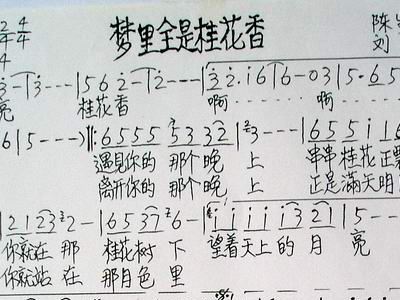 2 4 梦里全是桂花香 陈
4 4 刘
4
3 - 1 3 - - - | 5 6 2 - | 2 - - - | 3 2 · i 6 | 6 - 0 3 | 5 · 6 5
亮 桂花香 啊 啊
6 | 5 - - - ‖: 6 5 5 5 5 3 3 2 | 3 - - - | 6 5 5 i i 6
遇見你的 那个晚 上 串串桂花正
离开你的 那个晚 上 正是滿天明
2 1 2 3 2 - | 6 5 3 7 6 - | i i i i i 3 2 1 | 5 - -
你就在 那 桂花树 下 望着天上的 月 亮
你就站 在 那月色 里